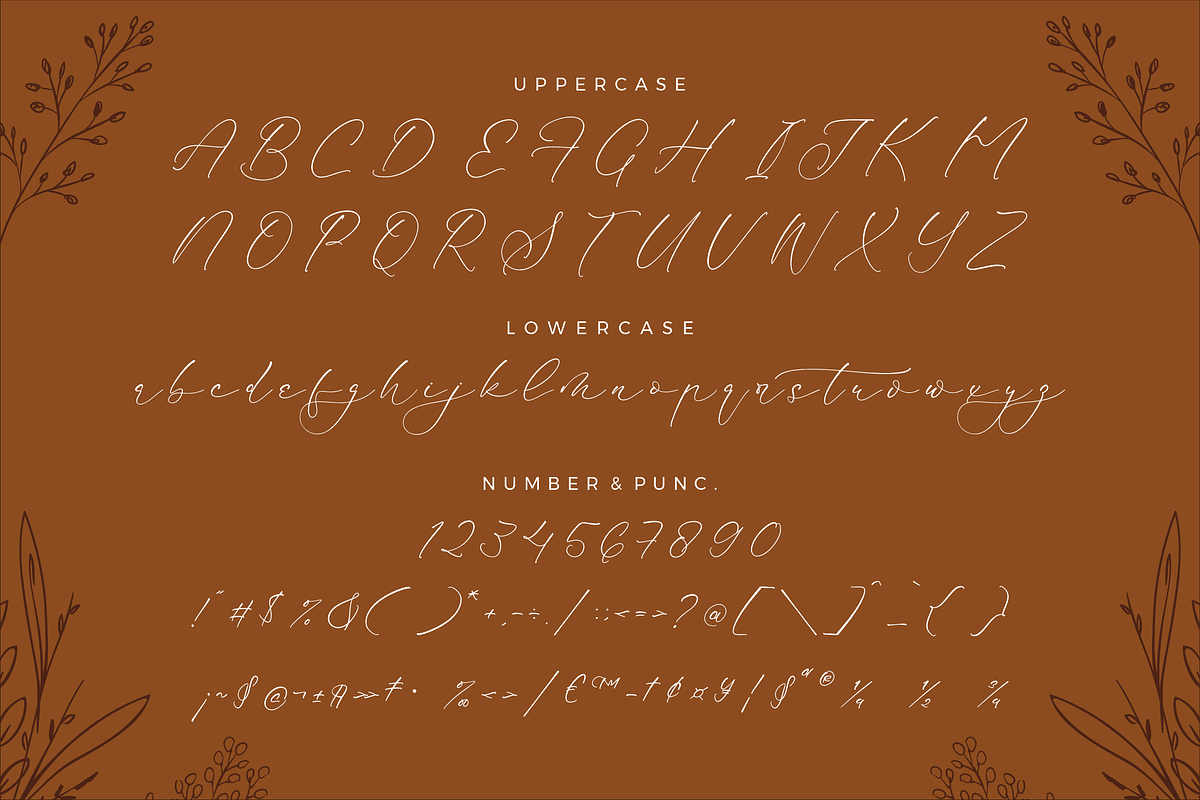 UPPERCASE
A B C D E F G H I J K M
N O P Q R S T U V W X Y Z
LOWERCASE
abcdefghijklmnopqrstuvwxyz
NUMBER & PUNC.
1234567890
!"#$%&()*+,-÷./:;<=>?@[\]^_`{}
¡~§@¬±‡·‰<>/€™-†¢¤¥¦§ª®¼ ½ ¾